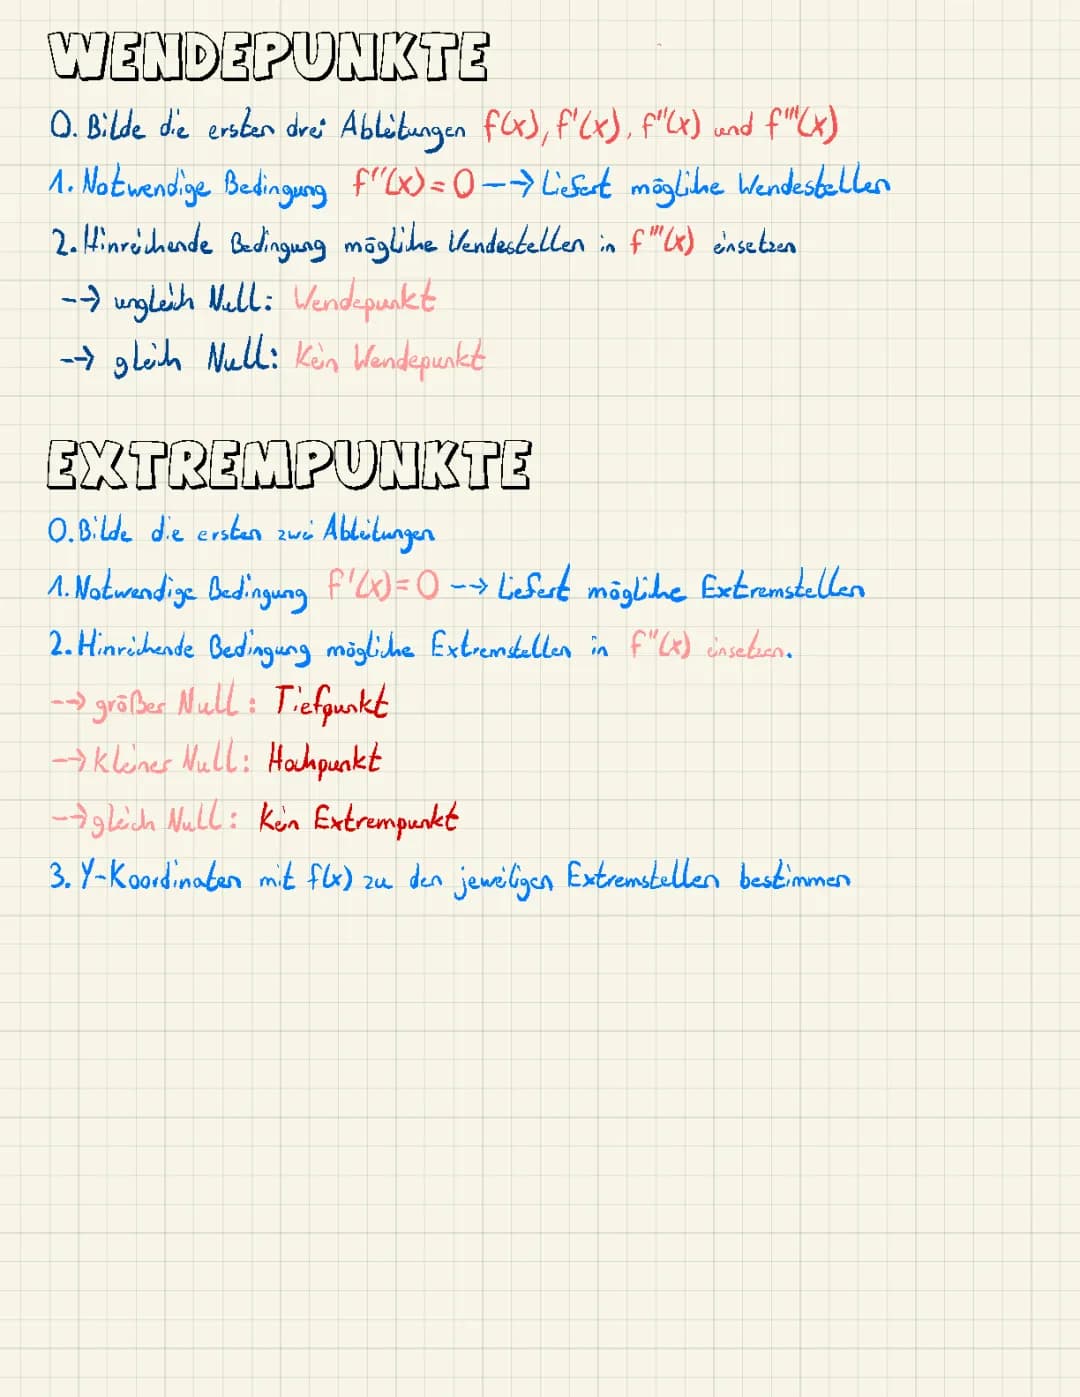 WENDEPUNKTE
0. Bilde die ersten drei Ableitungen f(x), f'(x), f''(x) und f'''(x)
1. Notwendige Bedingung f''(x) = 0 --> Liefert mögliche Wendestellen
2. Hinreichende Bedingung mögliche Wendestellen in f'''(x) einsetzen
--> ungleich Null: Wendepunkt
--> gleich Null: Kein Wendepunkt
EXTREMPUNKTE
0. Bilde die ersten zwei Ableitungen
1. Notwendige Bedingung f'(x) = 0 --> Liefert mögliche Extremstellen
2. Hinreichende Bedingung mögliche Extremstellen in f''(x) einsetzen.
--> größer Null: Tiefpunkt
--> kleiner Null: Hochpunkt
--> gleich Null: Kein Extrempunkt
3. Y-Koordinaten mit f(x) zu den jeweiligen Extremstellen bestimmen